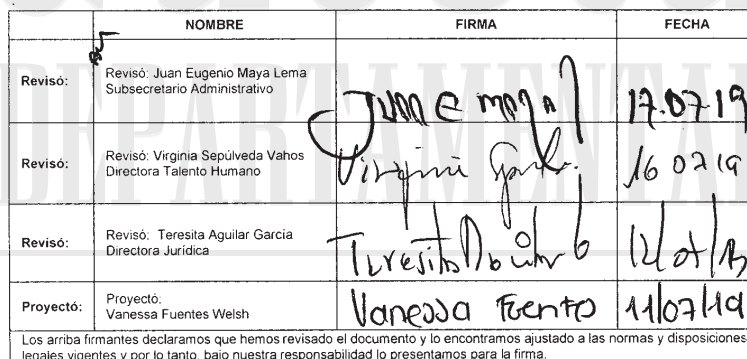 NOMBRE FIRMA FECHA
Revisó: Revisó: Juan Eugenio Maya Lema
Subsecretario Administrativo
Juan E Maya 17.07.19
Revisó: Revisó: Virginia Sepúlveda Vahos
Directora Talento Humano
Virginia 16 07 19
Revisó: Revisó: Teresita Aguilar García
Directora Jurídica
Teresita Aguilar 12/07/19
Proyectó: Proyectó:
Vanessa Fuentes Welsh
Vanessa Fuentes 11/07/19
Los arriba firmantes declaramos que hemos revisado el documento y lo encontramos ajustado a las normas y disposiciones
legales vigentes y por lo tanto, bajo nuestra responsabilidad lo presentamos para la firma.
DEPARTAMENTAL